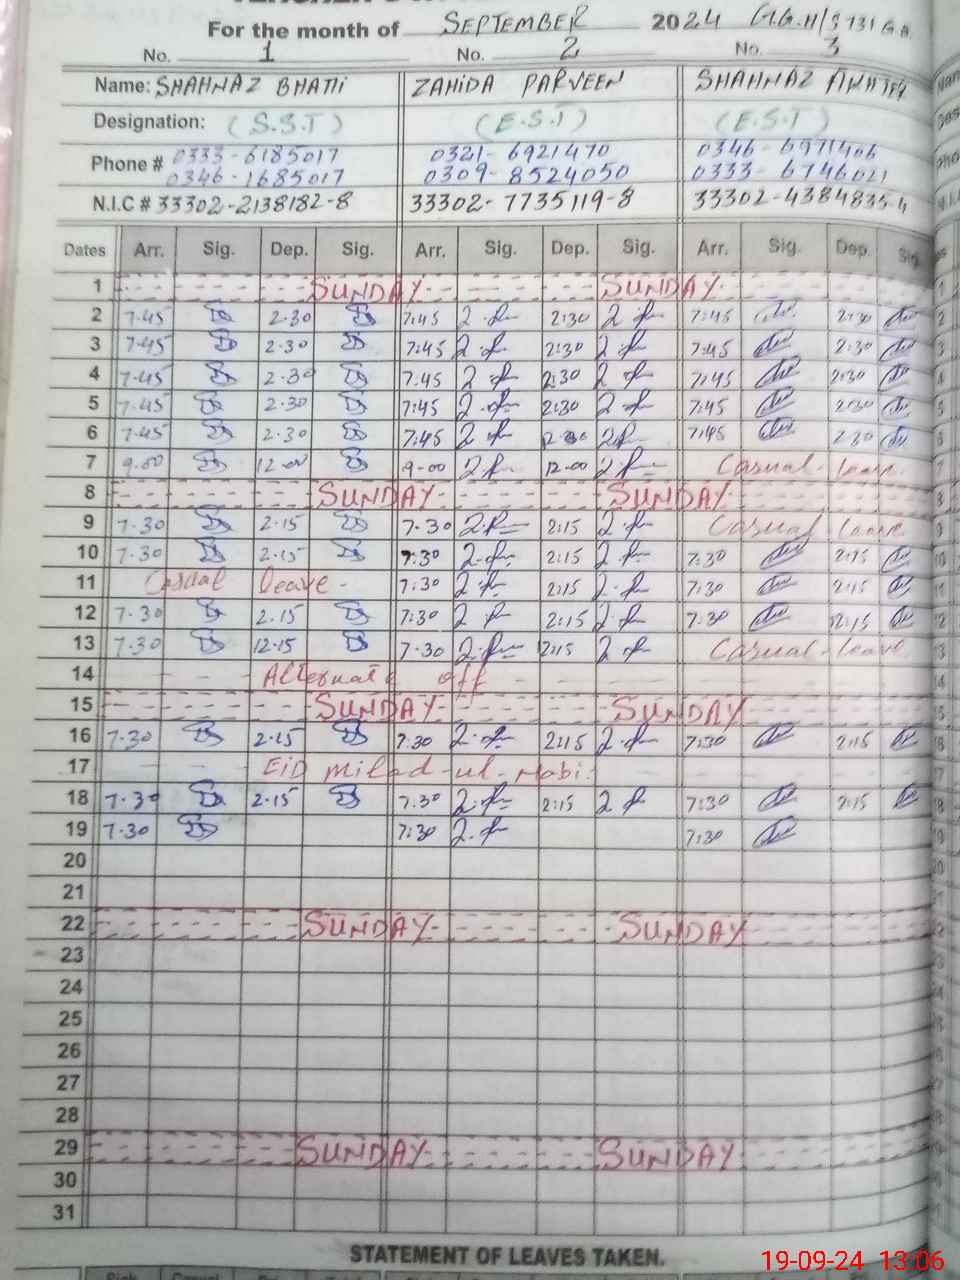 For the month of SEPTEMBER 2024 G.G.H/S 131 G.B.
No. 1 No. 2 No. 3
Name: SHAHNAZ BHATTI ZAHIDA PARVEEN SHAHNAZ AKHTER
Designation: (S.S.T) (E.S.T) (E.S.T)
Phone # 0333-6185017 0321-6921470 0346-6971406
0346-1685017 0309-8524050 0333-6746021
N.I.C # 33302-2138182-8 33302-7735119-8 33302-4384835-4
Dates Arr. Sig. Dep. Sig. Arr. Sig. Dep. Sig. Arr. Sig. Dep. Sig.
1 SUNDAY SUNDAY
2 7.45 2.30 7:45 2:30 7:45 2:30
3 7.45 2.30 7:45 2:30 7:45 2:30
4 7.45 2.30 7:45 2:30 7:45 2:30
5 7.45 2.30 7:45 2:30 7:45 2:30
6 7.45 2.30 7:45 2:30 7:45 2:30
7 9.00 12.00 9-00 12-00 Casual leave
8 SUNDAY SUNDAY
9 7.30 2.15 7.30 2:15 Casual leave
10 7.30 2.15 7:30 2:15 7:30 2:15
11 leave 7:30 2:15 7:30 2:15
12 7.30 2.15 7:30 2:15 7:30 2:15
13 7.30 12.15 7.30 2:15 Casual-leave
14 Alternate off
15 SUNDAY SUNDAY
16 7.30 2.15 7.30 2:15 7:30 2:15
17 EiD milad-ul-Nabi.
18 7.30 2.15 7.30 2:15 7:30 2:15
19 7.30 7:30 7:30
20
21
22 SUNDAY SUNDAY
23
24
25
26
27
28
29 SUNDAY SUNDAY
30
31
STATEMENT OF LEAVES TAKEN.
19-09-24 13:06